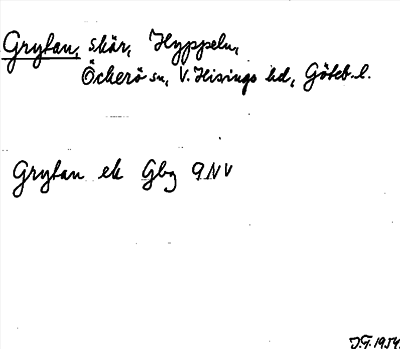 Grytan, skär, Hyppeln,
Öckerö sn, V. Hisings hd, Göteb. l.
Grytan ek Gbg 9NV
J.G. 1954.